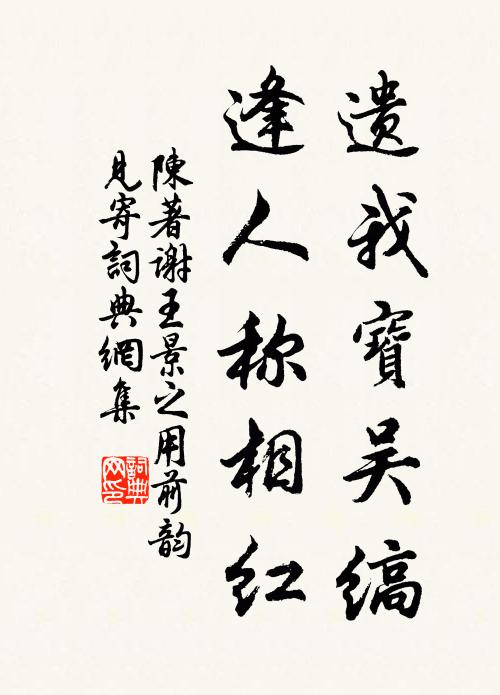 遗我寶吴缟
逢人称相红
陳著谢王景之用前韵
見寄詞典網集
詞典
网印